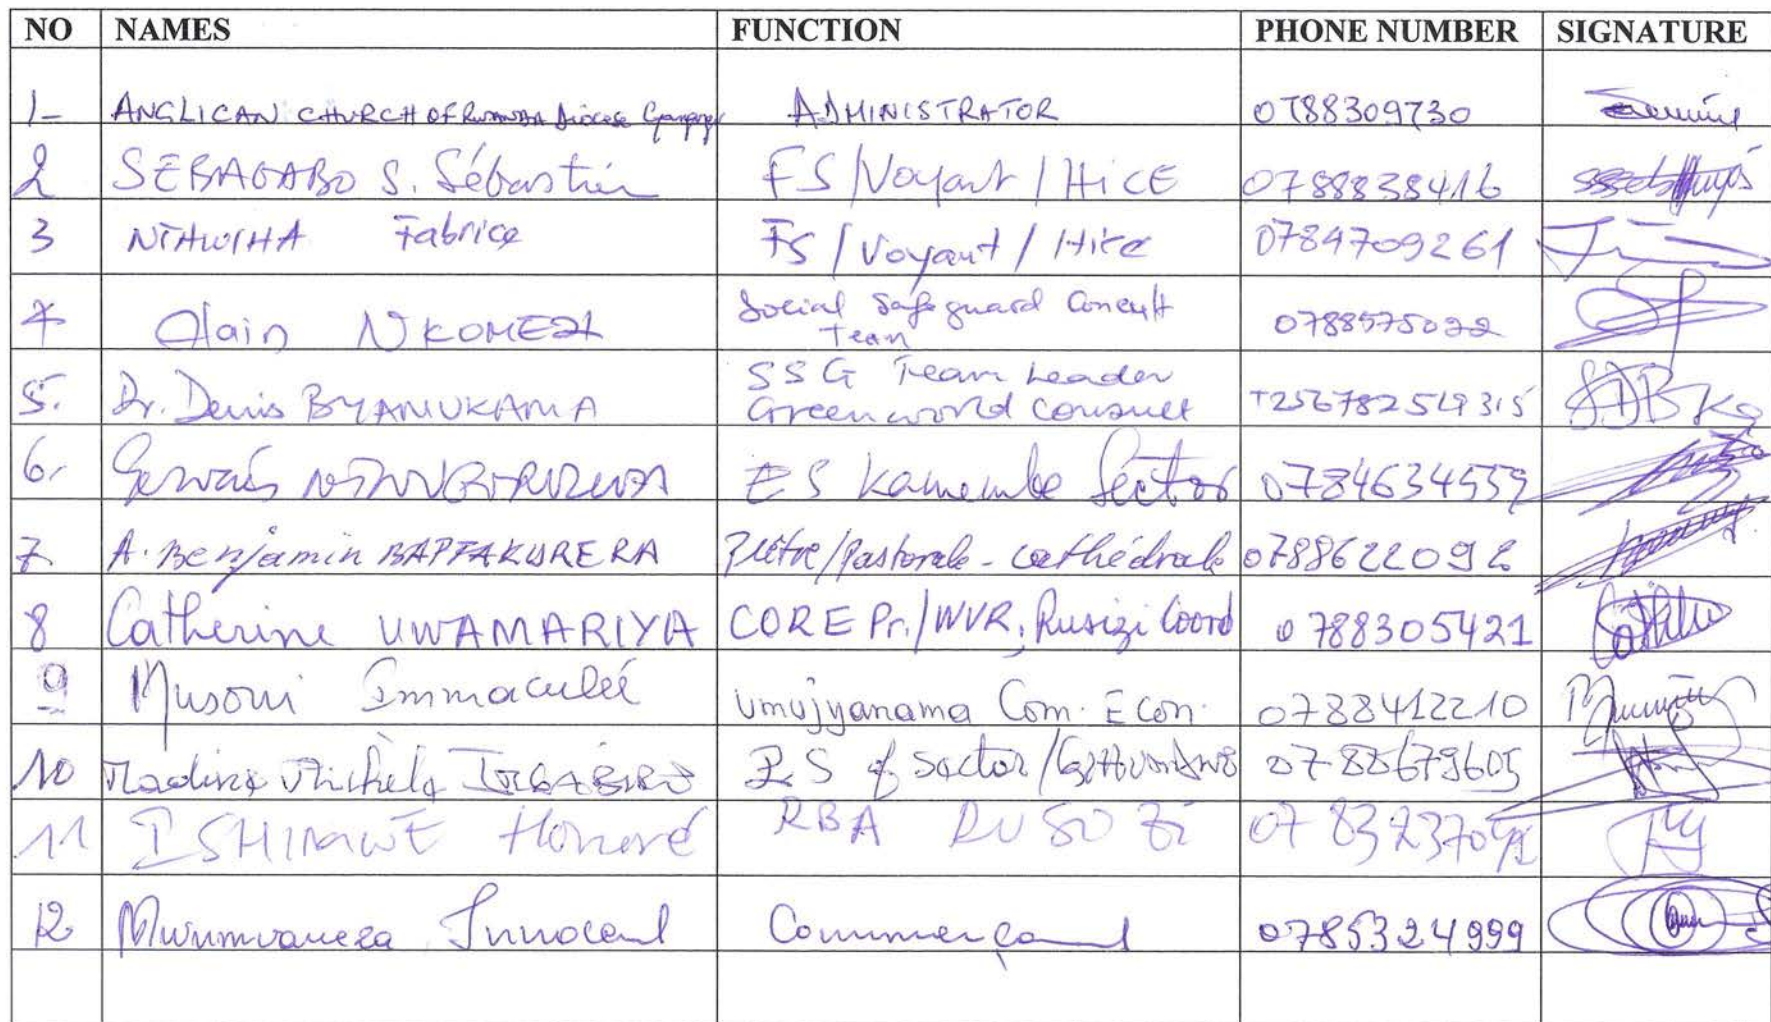 NO NAMES FUNCTION PHONE NUMBER SIGNATURE
1- ANGLICAN CHURCH OF RWANDA Diocese ADMINISTRATOR 0788309730
2 SEBAGABO S. Sébastien FS/Voyant/HICE 0788838416
3 Fabrice FS/Voyant/Hice 0784709261
4 Alain NKOMEZI Social Safeguard Consult 0788575022
Team
5. Dr. Denis BYAMUKAMA SSG Team Leader +256782519315
Greenworld consult
6. Gervais ES Kamembe Sector 0784634559
7 A. Benjamin BAPFAKURERA Prêtre/Pastorale-cathédrale 0788622092
8 Catherine UWAMARIYA CORE Pr./WVR, Rusizi Coord 0788305421
9 Musoni Immaculée Umujyanama Com. Econ. 0788412210
10 ES of Sector/ 0788679605
11 ISHIMWE Honoré RBA RUSIZI
12 Innocent Commerçant 0785324999